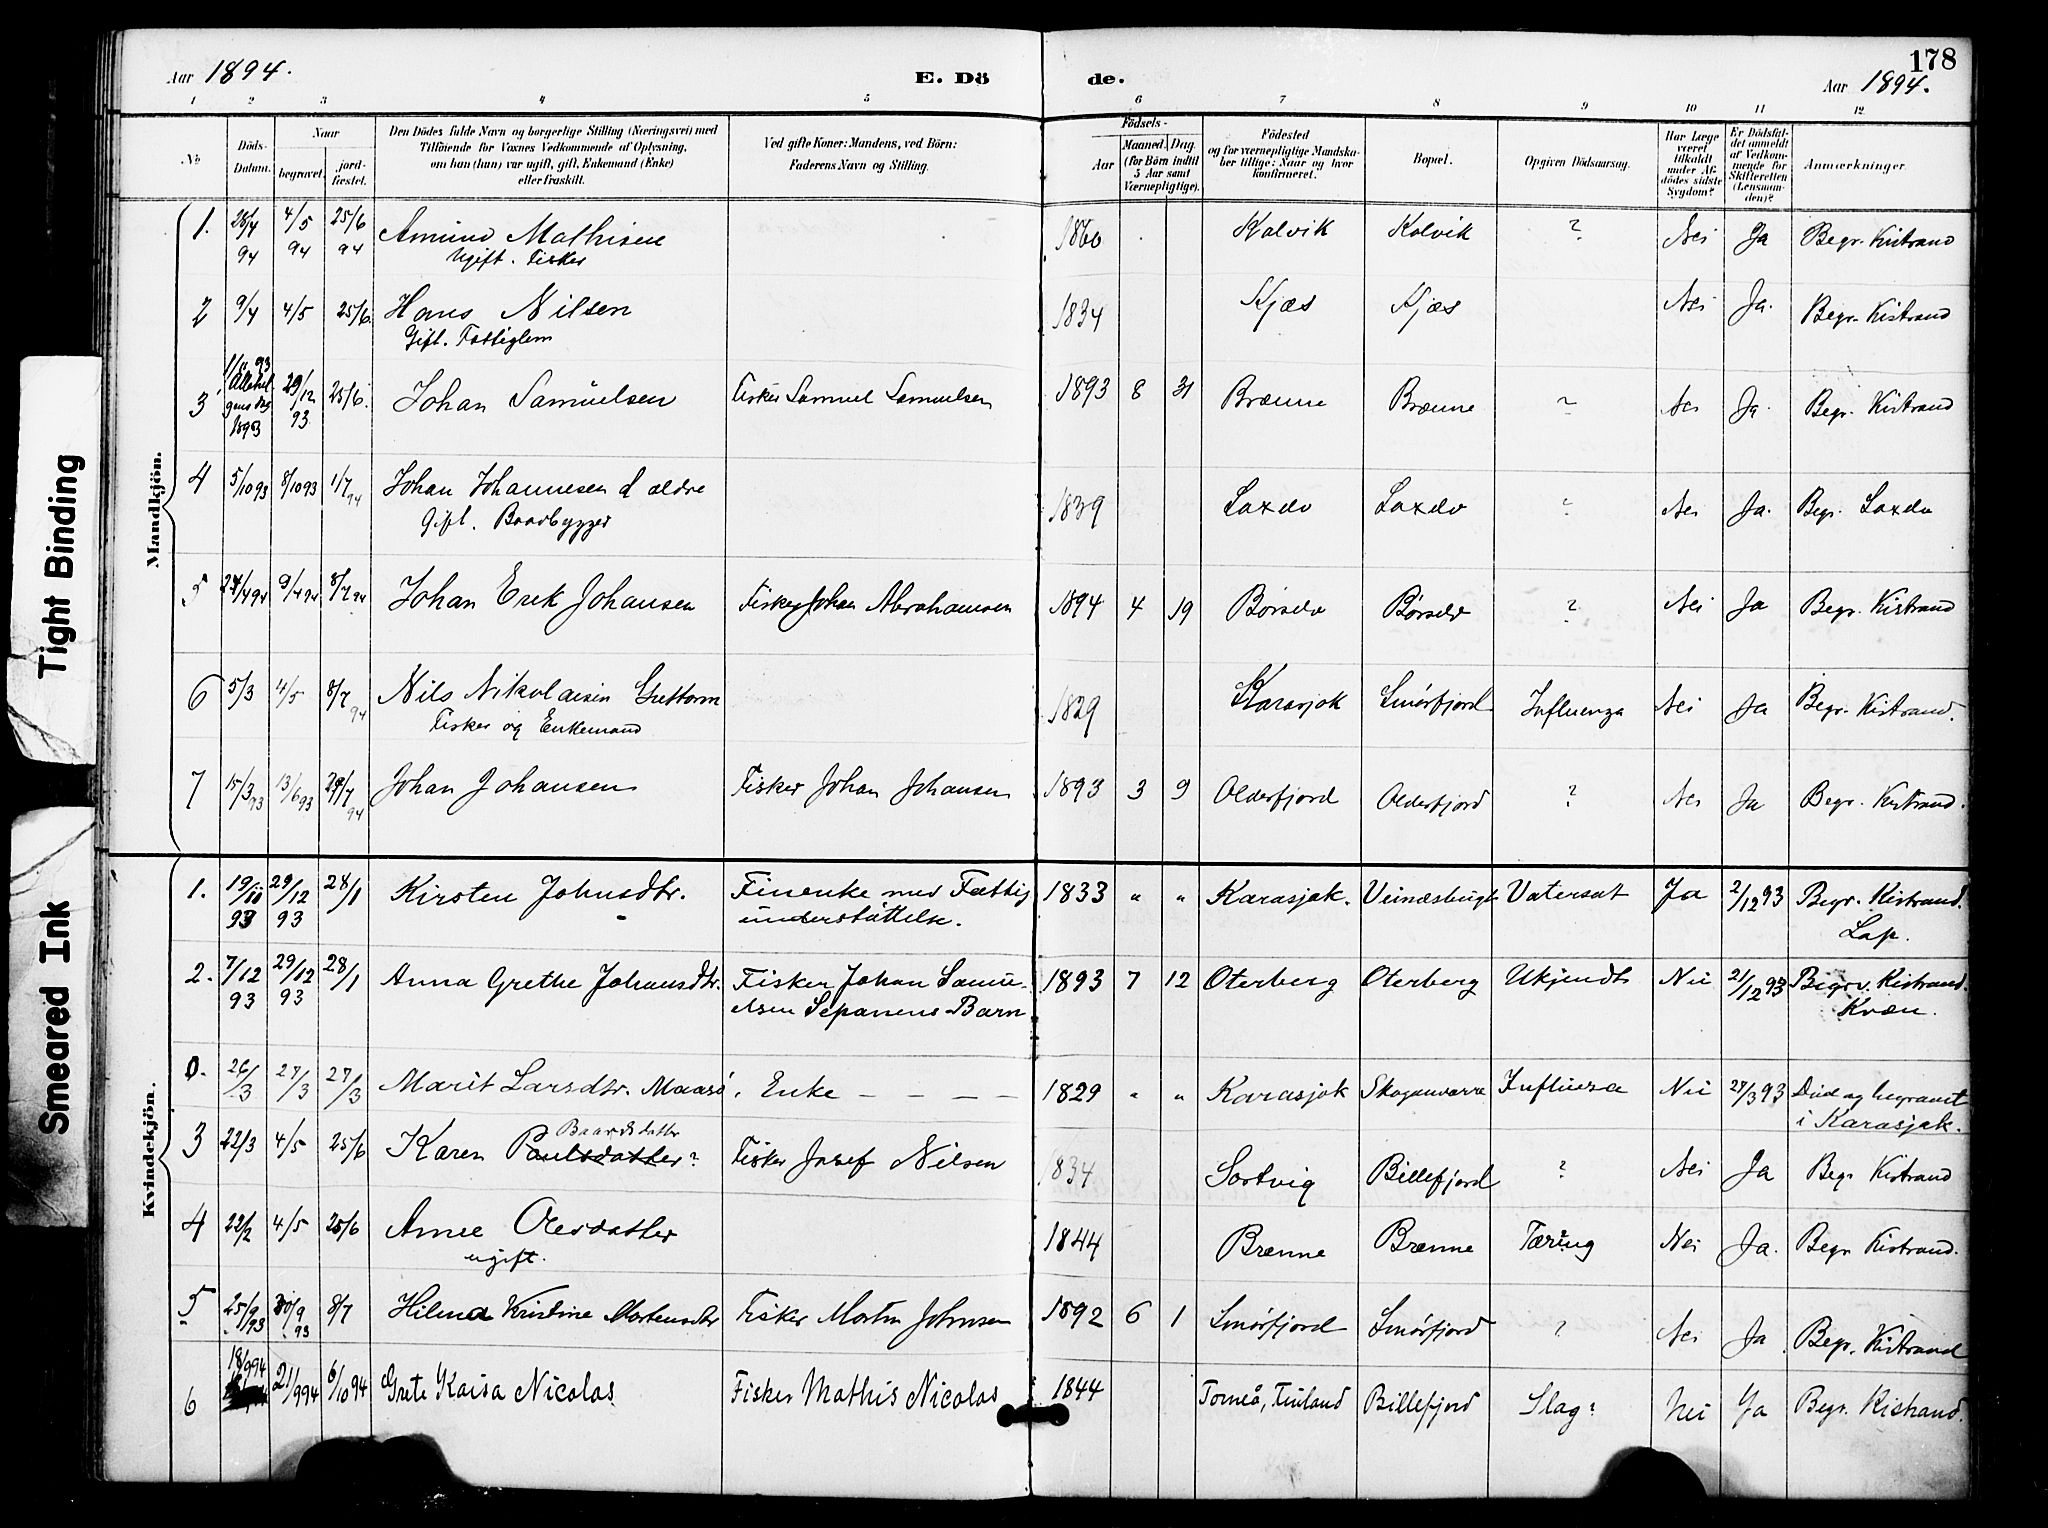 178
Aar 1894. E. Dö de. Aar 1894.
1 2 3 4 5 6 7 8 9 10 11 12
No
Döds-Datum.
Naar
begravet.
jord-fæstet.
Den Dödes fulde Navn og borgerlige Stilling (Næringsvei) med
Tilföiende for Voxnes Vedkommende af Oplysning,
om han (hun) var ugift, gift, Enkemand (Enke)
eller fraskilt.
Ved gifte Koner: Mandens, ved Börn:
Faderens Navn og Stilling.
Födsels-
Aar
Maaned. Dag.
(for Börn indtil
5 Aar samt
Værnepligtige).
Födested
og for værnepligtige Mandska-
ber tillige: Naar og hvor
konfirmeret.
Bopæl.
Opgiven Dödsaarsag.
Har Læge
været
tilkaldt
under Af-
dödes sidste
Sygdom?
Er Dödsfal-
det anmeldt
af Vedkom-
mende for
Skifteretten
(Lensman-
den)?
Anmærkninger.
Mandkjön.
1. 28/4 94 4/5 94 25/6 94 Amund Mathisen 1860 Kolvik Kolvik ? Nei Ja Begr. Kistrand
Ugift. Fisker
2 9/4 4/5 25/6. Hans Nilsen 1834 Kjæs Kjæs Nei Ja. Begr. Kistrand
Gift. Fattiglem
3 1/11 93 Allehelgensdag 1893 29/12 93 25/6. Johan Samuelsen Fisker Samuel Samuelsen 1893 8 31 Brænne Brænne ? Nei Ja. Begr. Kistrand
4 5/10 93 8/10 93 1/7 94 Johan Johannesen d ældre 1839 Laxelv Laxelv ? Nei Ja. Begr. Laxelv
Gift. Baadbygger
5 24/4 94 9/4 94 8/7 94 Johan Erik Johansen Fisker Johan Abrahamsen 1894 4 19 Børselv Børselv ? Nei Ja Begr. Kistrand
6 5/3 4/5 8/7 94 Nils Nikolaisen Guttorm 1829 Karasjok Smørfjord Influenza Nei Ja Begr. Kistrand.
Fisker og Enkemand
7 15/3 93 13/6 93 29/7 94 Johan Johansen Fisker Johan Johansen 1893 3 9 Olderfjord Olderfjord ? Nei Ja Begr. Kistrand.
Kvindekjön.
1. 19/11 93 29/12 93 28/1 Kirsten Johnsdtr. Finenke med Fattig 1833 " " Karasjok. Veinæsbugt Vatersot Ja 2/12 93 Begr. Kistrand.
understøttelse. Lap.
2. 7/12 93 29/12 93 28/1 Anna Grethe Johansdtr. Fisker Johan Samu- 1893 7 12 Oterberg Oterberg Ukjendt Nei 21/12 93 Begrv. Kistrand.
elsen Sepanens Barn Kvæn.
0. 26/3 27/3 27/3 Marit Larsdtr. Maasø. Enke – – – – 1829 " " Karasjok Skoganvarra Influenza Nei 27/3 93 Død og begravet
i Karasjok.
Baardsdatter
3 22/3 4/5 25/6 Karen Paulsdatter? Fisker Josef Nilsen 1834 Sortvig Billefjord ? Nei Ja Begr Kistrand
4 22/2 4/5 25/6 Anne Olesdatter 1844 Brænne Brænne Tæring Nei Ja. Begr Kistrand.
ugift.
5 25/9 93 30/9 93 8/7 Hilma Kristine Mortensdtr Fisker Morten Johnsen 1892 6 1 Smørfjord Smørfjord ? Nei Ja Begr. Kistrand
6 18/9 94 21/9 94 6/10 94 Grete Kaisa Nicolas Fisker Mathis Nicolas 1844 Torneå, Finland Billefjord Slag? Nei Ja Begr. Kistrand.
Tight Binding
Smeared Ink